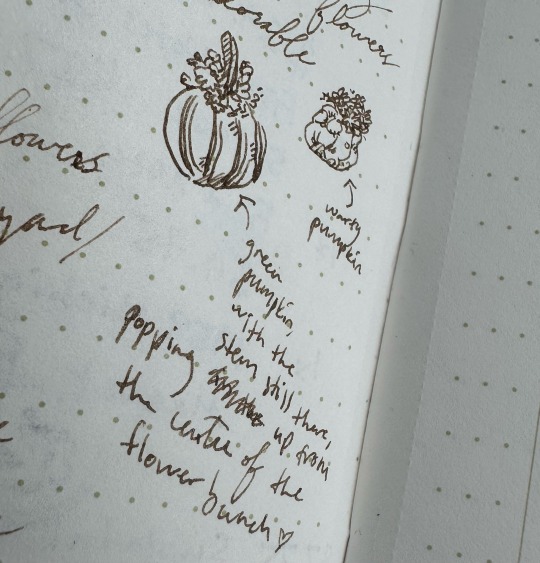 flowers
adorable
flowers
yard/
warty
pumpkin
green
pumpkin,
with the
stem still there,
popping up from
the centre of the
flower bunch ♡